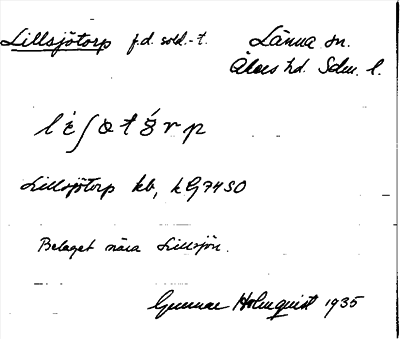 Lillsjötorp f.d. sold.-t. Länna sn.
Åkers hd. Sdm. l.
Lillsjötorp kb, kG74SO
Beläget nära Lillsjön.
Gunnar Holmquist 1935